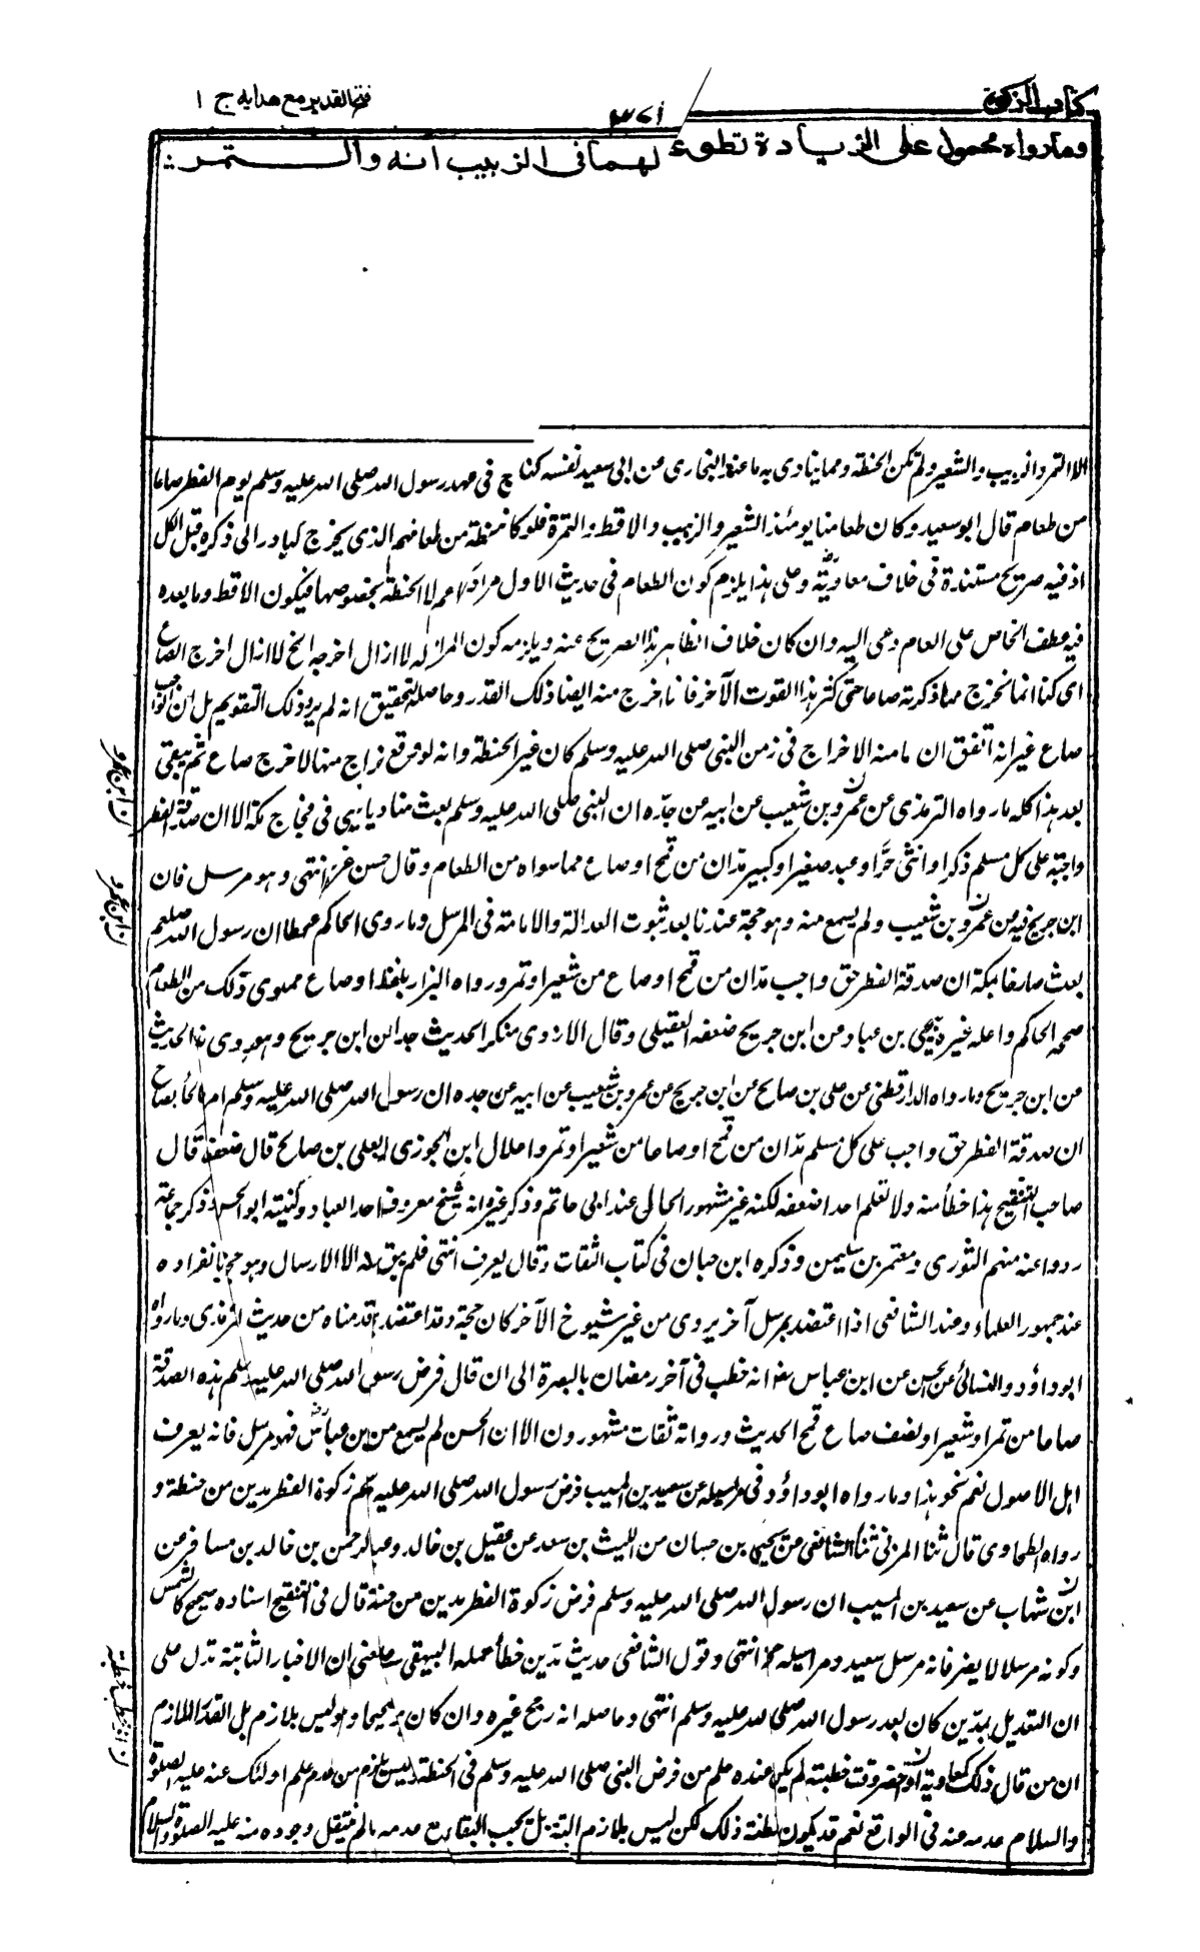 كتاب الزكوة
٣٧١
فتح القدير مع هدايه ج ١
ومارواه محمول على الزيادة تطوعا لهما فى الزبيب انه والتمر ::
الا التمر والزبيب والشعير ولم تكن الحنطة ومما ينادى به ما عند البخارى عن ابى سعيد نفسه كنا نخرج فى عهد رسول الله صلى الله عليه وسلم يوم الفطر صاعا
من طعام قال ابو سعيد وكان طعامنا يومئذ الشعير والزبيب والاقط والتمر فلو كانت الحنطة من طعامهم الذى يخرج لبادر الى ذكره قبل الكل
اذ فيه صريح مستنده فى خلاف معاوية وعلى هذا يلزم كون الطعام فى حديث الاول مرادا به الاعم لا الحنطة بخصوصها فيكون الاقط وما بعده
فيه عطف الخاص على العام دعى اليه وان كان خلاف الظاهر هذا الصريح عنه ويلزمه كون المراد بلا ازال اخرجه الخ لا ازال اخرج الصاع
اى كنا انما نخرج مما ذكرته صاعا حتى كثر هذا القوت الآخر فانا اخرج منه ايضا ذلك القدر وحاصله فى التحقيق انه لم ير ذلك التقويم بل ان الواجب
صاع غير انه اتفق ان ما منه الاخراج فى زمن النبى صلى الله عليه وسلم كان غير الحنطة وانه لو وقع الاخراج منها لاخرج صاع ثم يبقى
بعد هذا كله ما رواه الترمذى عن عمرو بن شعيب عن ابيه عن جده ان النبى صلى الله عليه وسلم بعث مناديا ينادى فى فجاج مكة الا ان صدقة الفطر
واجبة على كل مسلم ذكر او انثى حر او عبد صغير او كبير مدان من قمح او صاع مما سواه من الطعام وقال حسن غريب انتهى وهو مرسل فان
ابن جريج فيه عن عمرو بن شعيب ولم يسمع منه وهو حجة عندنا بعد ثبوت العدالة والامانة فى المرسل وما روى الحاكم عن عطاء ان رسول الله صلعم
بعث صارخا بمكة ان صدقة الفطر حق واجب مدان من قمح او صاع من شعير او تمر ورواه البزار بلفظ او صاع مما سوى ذلك من الطعام
صححه الحاكم واعله غيره بيحيى بن عباد عن ابن جريج ضعفه العقيلى وقال الازدى منكر الحديث جدا عن ابن جريج وهو يروى هذا الحديث
عن ابن جريج وما رواه الدارقطنى عن على بن صالح عن ابن جريج عن عمرو بن شعيب عن ابيه عن جده ان رسول الله صلى الله عليه وسلم امر صائحا فصاح
ان صدقة الفطر حق واجب على كل مسلم مدان من قمح او صاعا من شعير او تمر واعلال ابن الجوزى له بعلى بن صالح قال ضعفوه قال
صاحب التنقيح هذا خطأ منه ولا نعلم احدا ضعفه لكنه غير مشهور الحال عند ابى حاتم وذكر غيره انه شيخ معروف احد العباد وكنيته ابو الحسن وذكر جماعة
رووا عنه منهم الثورى ومعتمر بن سليمن وذكره ابن حبان فى كتاب الثقات وقال يعرف انتهى فلم يبق فيه الا الارسال وهو حجة بانفراده
عند جمهور العلماء وعند الشافعى اذا اعتضد بمرسل آخر يروى من غير شيوخ الآخر كان حجة وقد اعتضد بما قدمناه من حديث الترمذى وما رواه
ابو داؤد والنسائى عن الحسن عن ابن عباس انه خطب فى آخر رمضان بالبصرة الى ان قال فرض رسول الله صلى الله عليه وسلم هذه الصدقة
صاعا من تمر او شعير او نصف صاع قمح الحديث ورواته ثقات مشهورون الا ان الحسن لم يسمع من ابن عباس فهو مرسل فانه يعرف
اهل الاصول نعم نحو هذا وما رواه ابو داؤد فى مراسيله عن سعيد بن المسيب فرض رسول الله صلى الله عليه وسلم زكوة الفطر مدين من حنطة و
رواه الطحاوى قال ثنا المزنى ثنا الشافعى عن يحيى بن حسان عن الليث بن سعد عن عقيل بن خالد وعبد الرحمن بن خالد بن مسافر عن
ابن شهاب عن سعيد بن المسيب ان رسول الله صلى الله عليه وسلم فرض زكوة الفطر مدين من حنطة قال فى التنقيح اسناده صحيح كالشمس
وكونه مرسلا لا يضر فانه مرسل سعيد ومراسيله حجة انتهى وقول الشافعى حديث مدين خطأ حمله البيهقى على معنى ان الاخبار الثابتة تدل على
ان التعديل بمدين كان بعد رسول الله صلى الله عليه وسلم انتهى وحاصله انه رجح غيره وان كان هو صحيحا وهو ليس بلازم بل القدر اللازم
ان من قال ذلك كمعاوية او حضر وقت خطبته لم يكن عنده علم من فرض النبى صلى الله عليه وسلم فى الحنطة وليس يلزم من عدم علم اولئك عنه عليه الصلوة
والسلام عدمه عنه فى الواقع نعم قد يكون مظنة ذلك لكن ليس بلازم البتة بل يجب البقاء مع عدمه ما لم ينقل وجوده منه عليه الصلوة والسلام